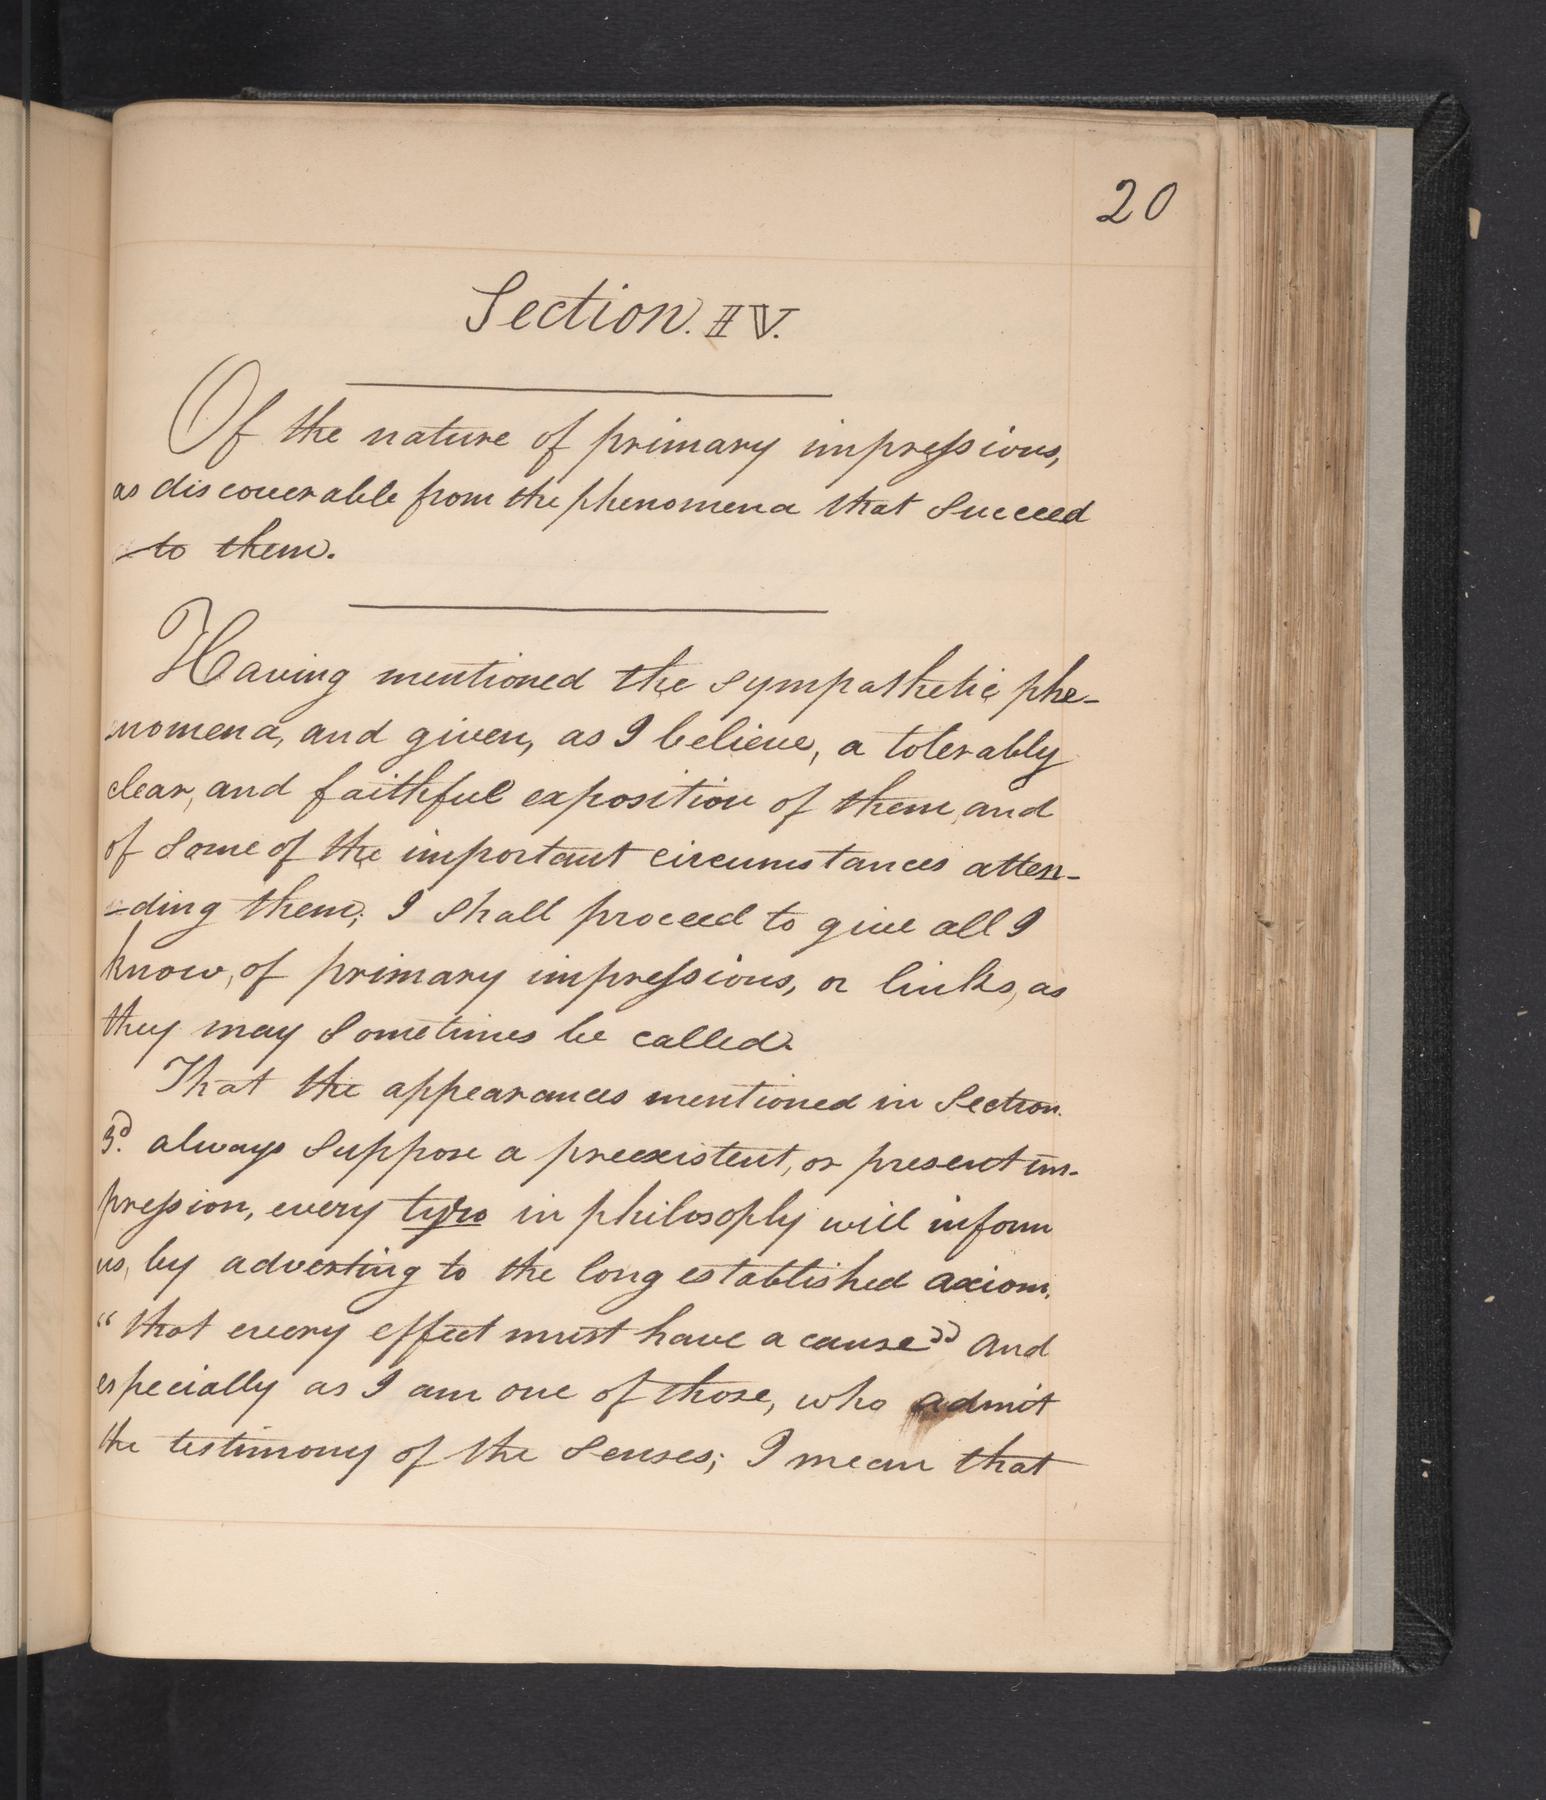 20
Section. IV.
Of the nature of primary impressions,
as discoverable from the phenomena that succeed
to them.
Having mentioned the sympathetic phe-
nomena, and given, as I believe, a tolerably
clear, and faithful exposition of them, and
of some of the important circumstances atten-
-ding them; I shall proceed to give all I
know, of primary impressions, or links, as
they may sometimes be called.
That the appearances mentioned in Section
3d. always suppose a preexistent, or present im-
pression, every tyro in philosophy will inform
us, by adverting to the long established axiom,
"that every effect must have a cause" and
especially as I am one of those, who admit
the testimony of the senses; I mean that